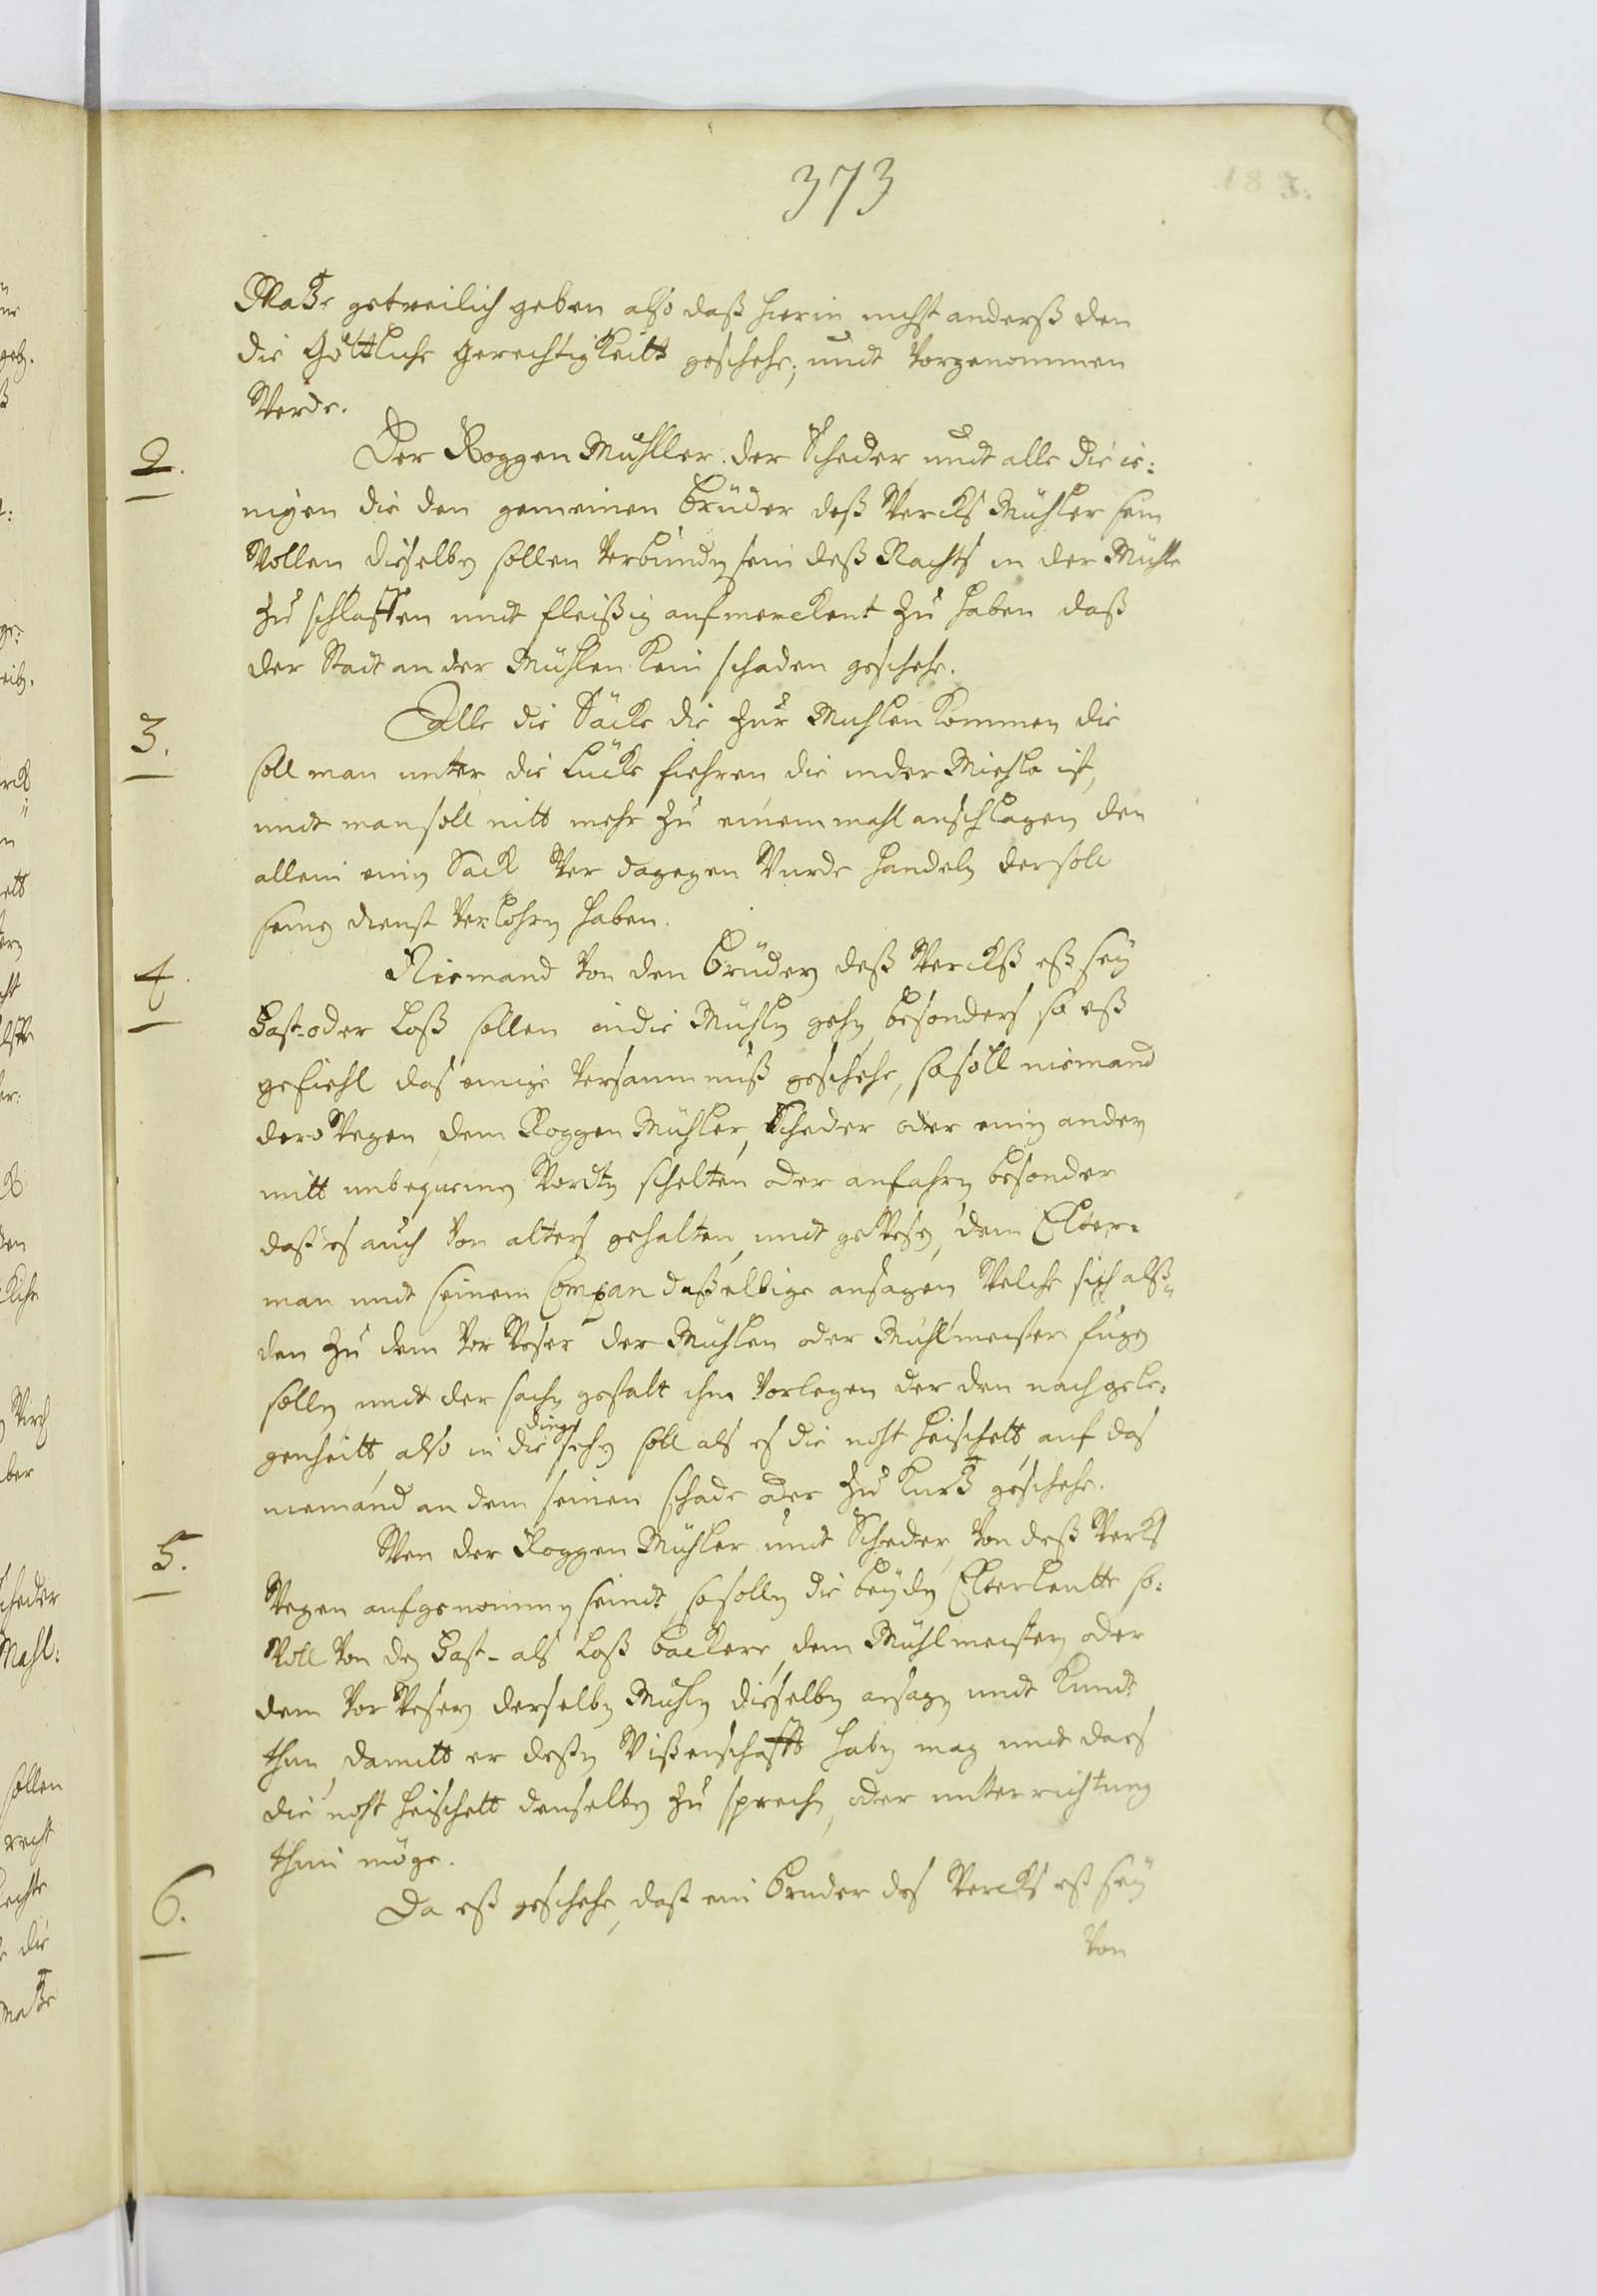 373
183.
Matze getreilich geben also daß hierin nichst anderß den
die Göttliche Gerechtigkeitt geschehe; undt vorgenommen
Werde.
2. Der Roggen Muhller der Scheder undt alle die ie:
nigen die den gemeinen brüder deß Wercks Mühler sein
Wollen dieselben sollen verbunden sein deß Nachts in der Mühle
zu schlaffen undt fleißig aufmerckent zu haben daß
der Stadt an der Mühlen kein schaden geschehe.
3. Alle die Säcke die zur Muhlen kommen die
soll man unter die Lücke fiehren die in der Miehle ist,
undt man soll nitt mehr zu einem mahl anschlagen den
allein einen Sack Wer dagegen Wurde handeln der soll
seinen dienst verlohren haben.
4. Niemand von den brüdern deß Werckß eß seÿ
Fast- oder Loß sollen in die Mühlen gehn besonders so eß
gefiehl das einige versaumnuß geschehe, so soll niemand
dero Wegen dem Roggen Mühler, Scheder oder einen andern
mitt unbequemen Wordten schelten oder anfahren besonder
daß es auch von alters gehalten undt geWesen, dem Elter=
man undt seinem Compan daßelbige ansagen Welche sich alß=
den zu dem vor Weser der Mühlen oder Mühlmeister fugen
sollen undt der sachen gestalt ihm vorlegen der den nach gele:
genheitt also in die dinge sehen soll als es die noht heischett auf das
niemand an dem seinen schade oder zu kurtz geschehe.
5. Wen der Roggen Mühler undt Scheder von deß Wercks
Wegen aufgenommen seindt, so sollen die beÿden Elterleutte so:
Woll von den Fast- als Loß backern dem Mühlmeistern oder
dem vor Wesern derselben Muhlen dieselben ansagen undt kundt
thun damitt er deßen Wißenschafft haben mag undt dars
die noht heischett denselben zu sprechen, oder unterrichtung
thun möge.
6. Da eß geschehe, daß ein bruder des Wercks eß seÿ
von